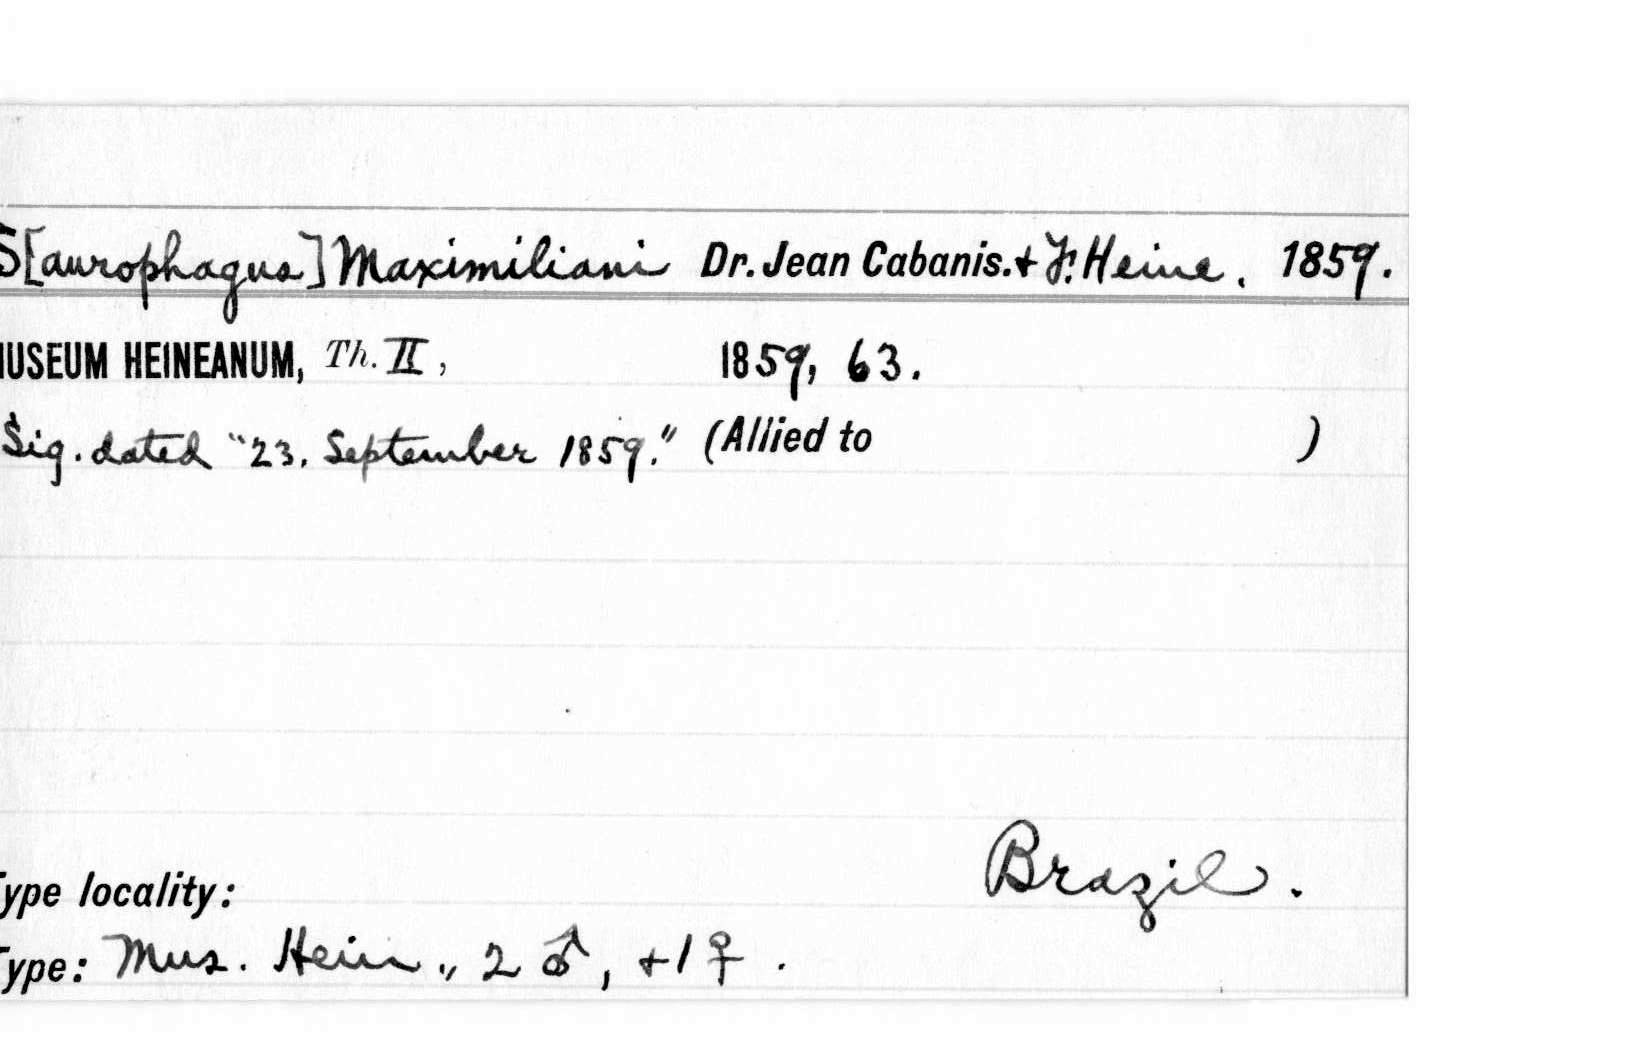 S[aurophagus] Maximiliani Dr. Jean Cabanis. + F. Heine. 1859.
MUSEUM HEINEANUM, Th. II, 1859, 63.
Sig. dated "23. September 1859." (Allied to )
Brazil.
Type locality:
Type: Mus. Hein., 2 ♂, + 1 ♀.